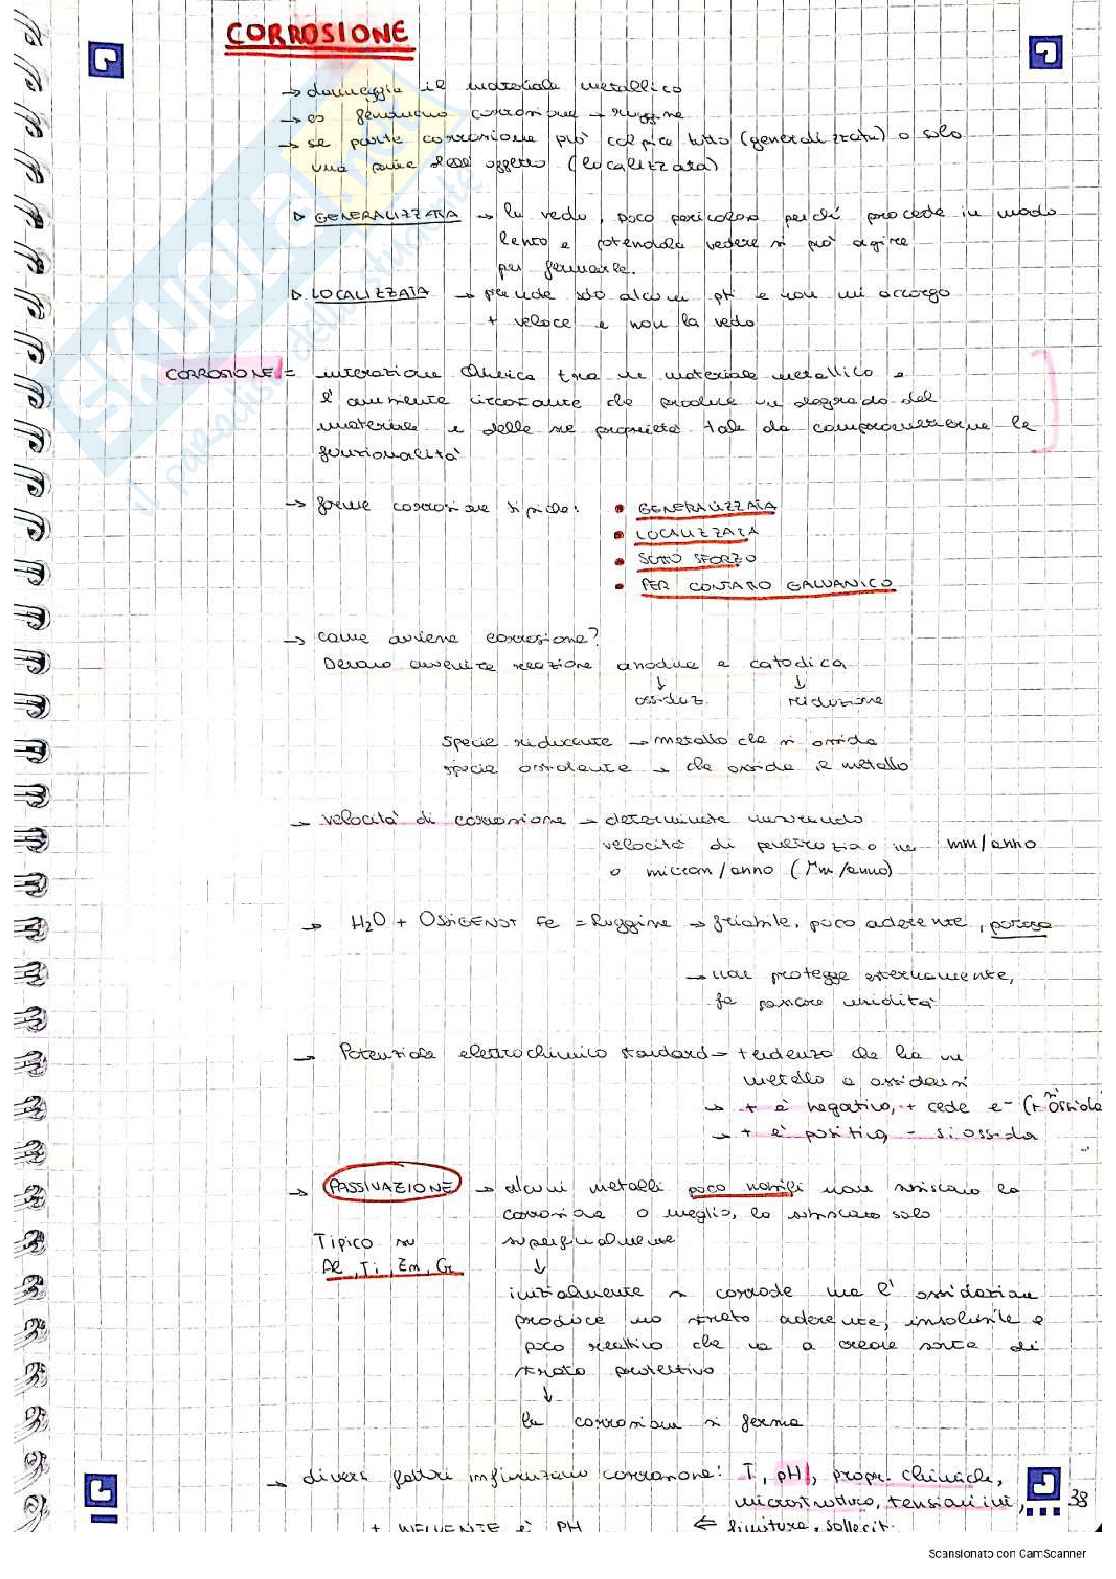 CORROSIONE
→ danneggia il materiale metallico
→ es fenomeno corrosione → ruggine
→ se parte corrosione può colpire tutto (generalizzata) o solo
una parte dell' oggetto (localizzata)
▷ GENERALIZZATA → la vedo, poco pericolosa perché procede in modo
lento e potendola vedere si può agire
per fermarla.
▷ LOCALIZZATA → prende solo alcuni pti e non mi accorgo
+ veloce e non la vedo
CORROSIONE = interazione chimica tra un materiale metallico e
l'ambiente circostante che produce un degrado del
materiale e delle sue proprietà tale da comprometterne la
funzionalità
→ forme corrosione tipiche:
• GENERALIZZATA
• LOCALIZZATA
• SOTTO SFORZO
• PER CONTATTO GALVANICO
→ come avviene corrosione?
Devono avvenire reazione anodica e catodica
↓ ↓
ossidaz. riduzione
specie riducente → metallo che si ossida
specie ossidante → che ossida il metallo
→ velocità di corrosione → determinata misurando
velocità di penetrazione in mm/anno
o micron/anno (μm/anno)
→ H2O + OSSIGENO + Fe = Ruggine → friabile, poco aderente, porosa
→ non protegge esternamente,
fa passare umidità
→ Potenziale elettrochimico standard → tendenza che ha un
metallo a ossidarsi
→ + è negativo, + cede e- (+ si ossida
→ + è positivo, - si ossida
→ PASSIVAZIONE → alcuni metalli poco nobili non subiscono la
corrosione o meglio, la subiscono solo
Tipico su superficialmente
Al, Ti, Zn, Cr ↓
inizialmente si corrode ma l'ossidazione
produce uno strato aderente, insolubile e
poco reattivo che va a creare sorta di
strato protettivo
↓
la corrosione si ferma
→ diversi fattori influenzano corrosione: T, pH, propr. chimiche,
microstruttura, tensioni int,
+ INFLUENTE è PH ⇐ finitura, sollecit.
38
Scansionato con CamScanner
SKUOLA.net
il paradiso dello studente